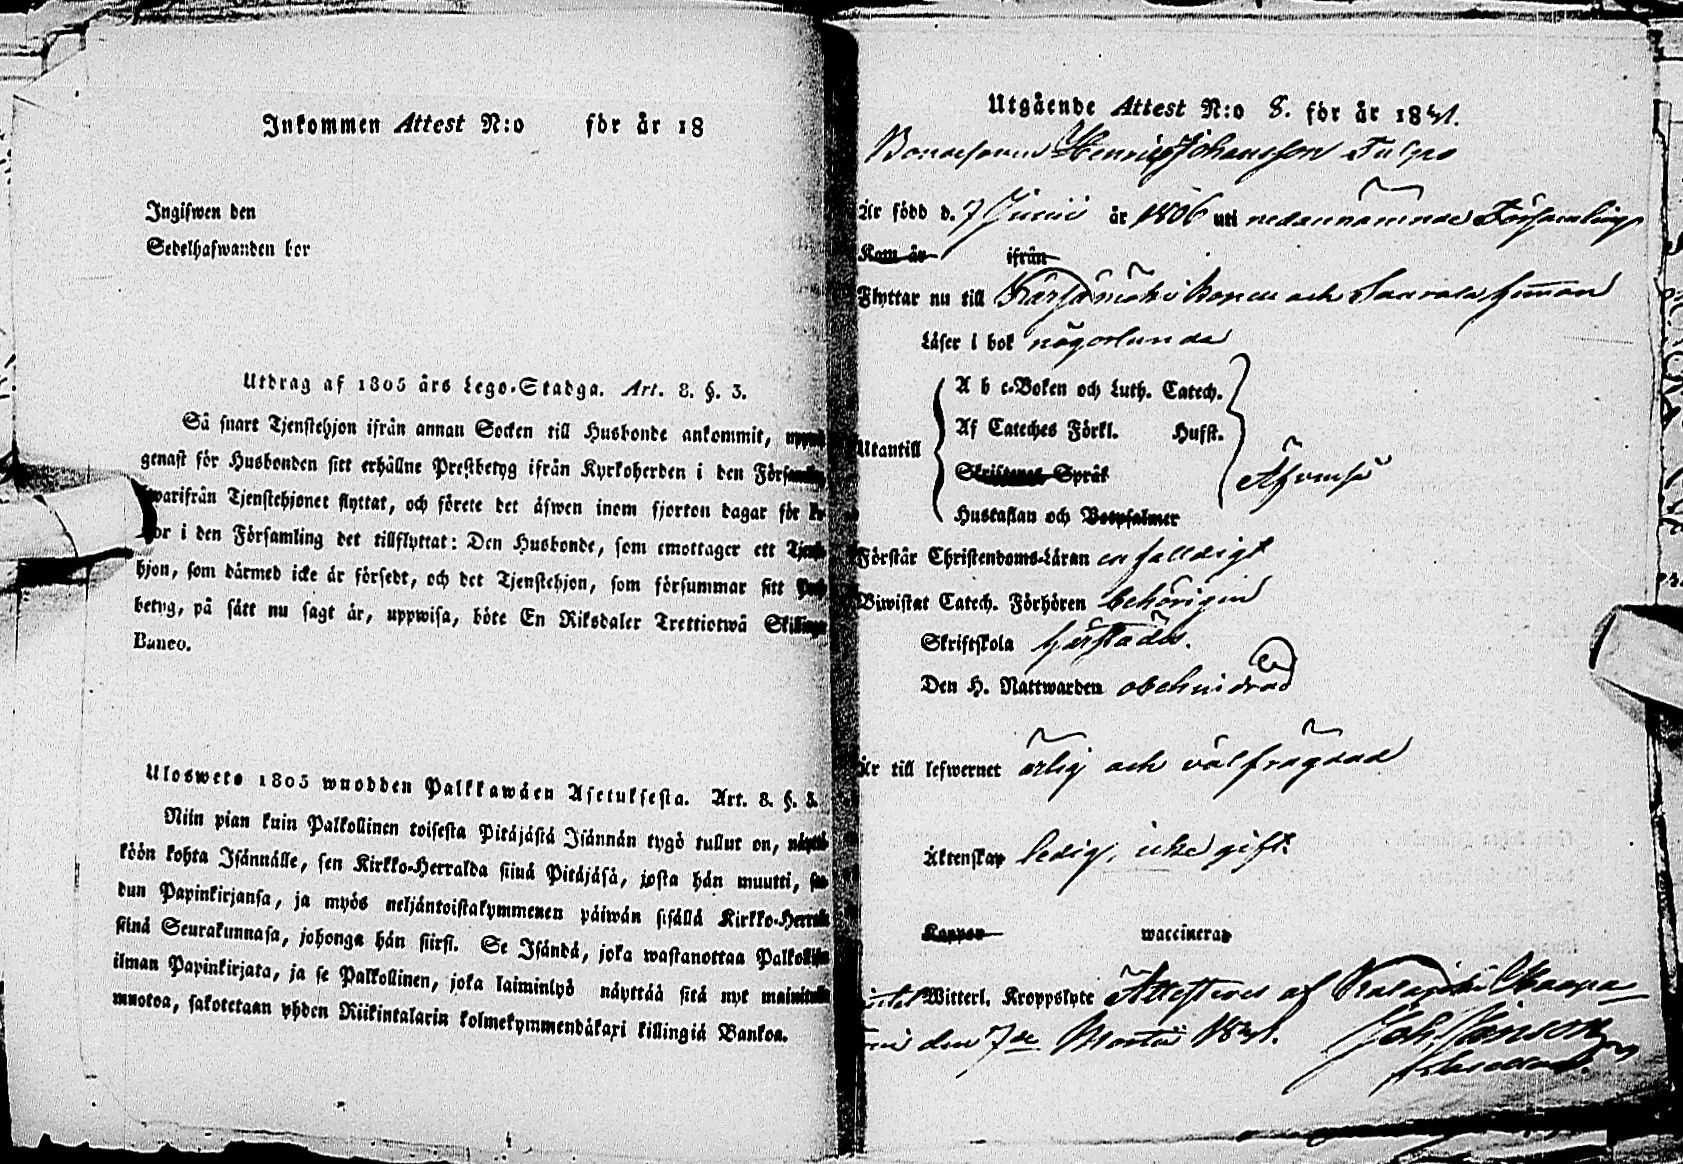 Inkommen Attest N:o för år 18
Ingifwen den
Sedelhafwanden bor
Utdrag af 1805 års Lego-Stadga. Art. 8. §. 3.
Så snart Tjenstehjon ifrån annan Socken till Husbonde ankommit,
genast för Husbonden sitt erhållne Prestbetyg ifrån Kyrkoherden i den
hwarifrån Tjenstehjonet flyttat, och förete det åfwen inom fjorton dagar för
i den Församling det tillflyttat: Den Husbonde, som emottager ett
hjon, som därmed icke är försedt, och det Tjenstehjon, som försummar sitt
betyg, på sätt nu sagt är, uppwisa, böte En Riksdaler Trettiotwå Skillingar
Banco.
Ulosweto 1805 wuodden Palkkawäen Asetuksesta. Art. 8. §. 3.
Niin pian kuin Palkollinen toisesta Pitäjästä Isännän tygö tullut on,
köön kohta Isännälle, sen Kirkko-Herralda siinä Pitäjäsä, josta hän muutti,
dun Papinkirjansa, ja myös neljäntoistakymmenen päiwän sisällä
siinä Seurakunnasa, johonga hän siirsi. Se Isändä, joka wastanottaa
ilman Papinkirjata, ja se Palkollinen, joka laiminlyö näyttää sitä nyt
muotoa, sakotetaan yhden Riikintalarin kolmekymmendäkaxi killingiä Bankoa.
Utgående Attest N:o 8. för år 18
Bondesonen Henric Johansson
Är född d. 7 Junii år 1806 uti nedannämnde Församling
Kom år ifrån
Flyttar nu till Kärsämäki och
Läser i bok någorlunda
A b c-Boken och Luth. Catech.
Af Cateches Förkl. Hufst.
Utantill
Skriftenes Språk
Äfvenså
Hustaflan och Botpsalmer
Förstår Christendoms-Läran enfalldigt
Biwistat Catech. Förhören behörigen
Skriftskola
Den H. Nattwarden obehindrad
Är till lefwernet ärlig och välfrägdad
Äktenskap ledig, icke gift.
Koppor waccinerad
Witterl. Kroppslyte Attesteras af
den 7de